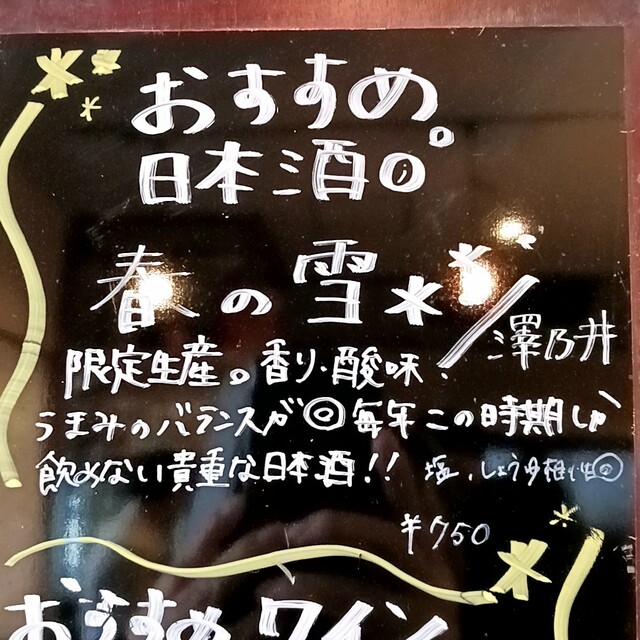 おすすめ
日本酒◎
春の雪 / 澤乃井
限定生産。香り・酸味、
うまみのバランスが◎毎年この時期しか
飲めない貴重な日本酒!! 塩、しょうゆ相性◎
¥750
おすすめワイン